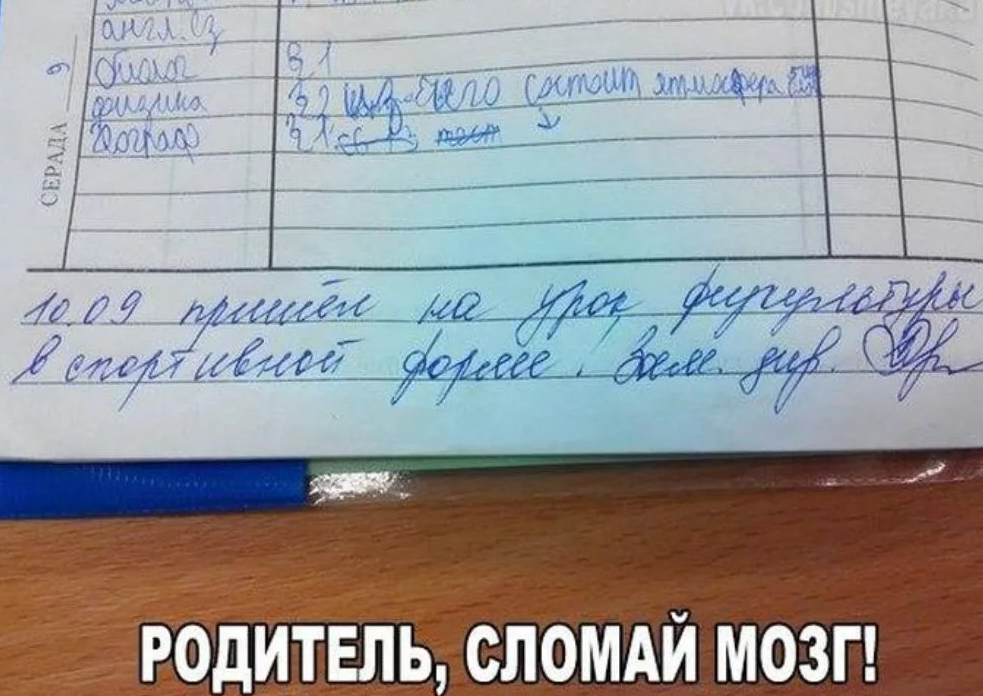 англ. яз
СЕРАДА 9
биолог § 1
физика § 2 из чего состоит атмосфера
географ § 1 тест
10.09 пришёл на урок физкультуры
в спортивной форме. Зам. дир.
РОДИТЕЛЬ, СЛОМАЙ МОЗГ!